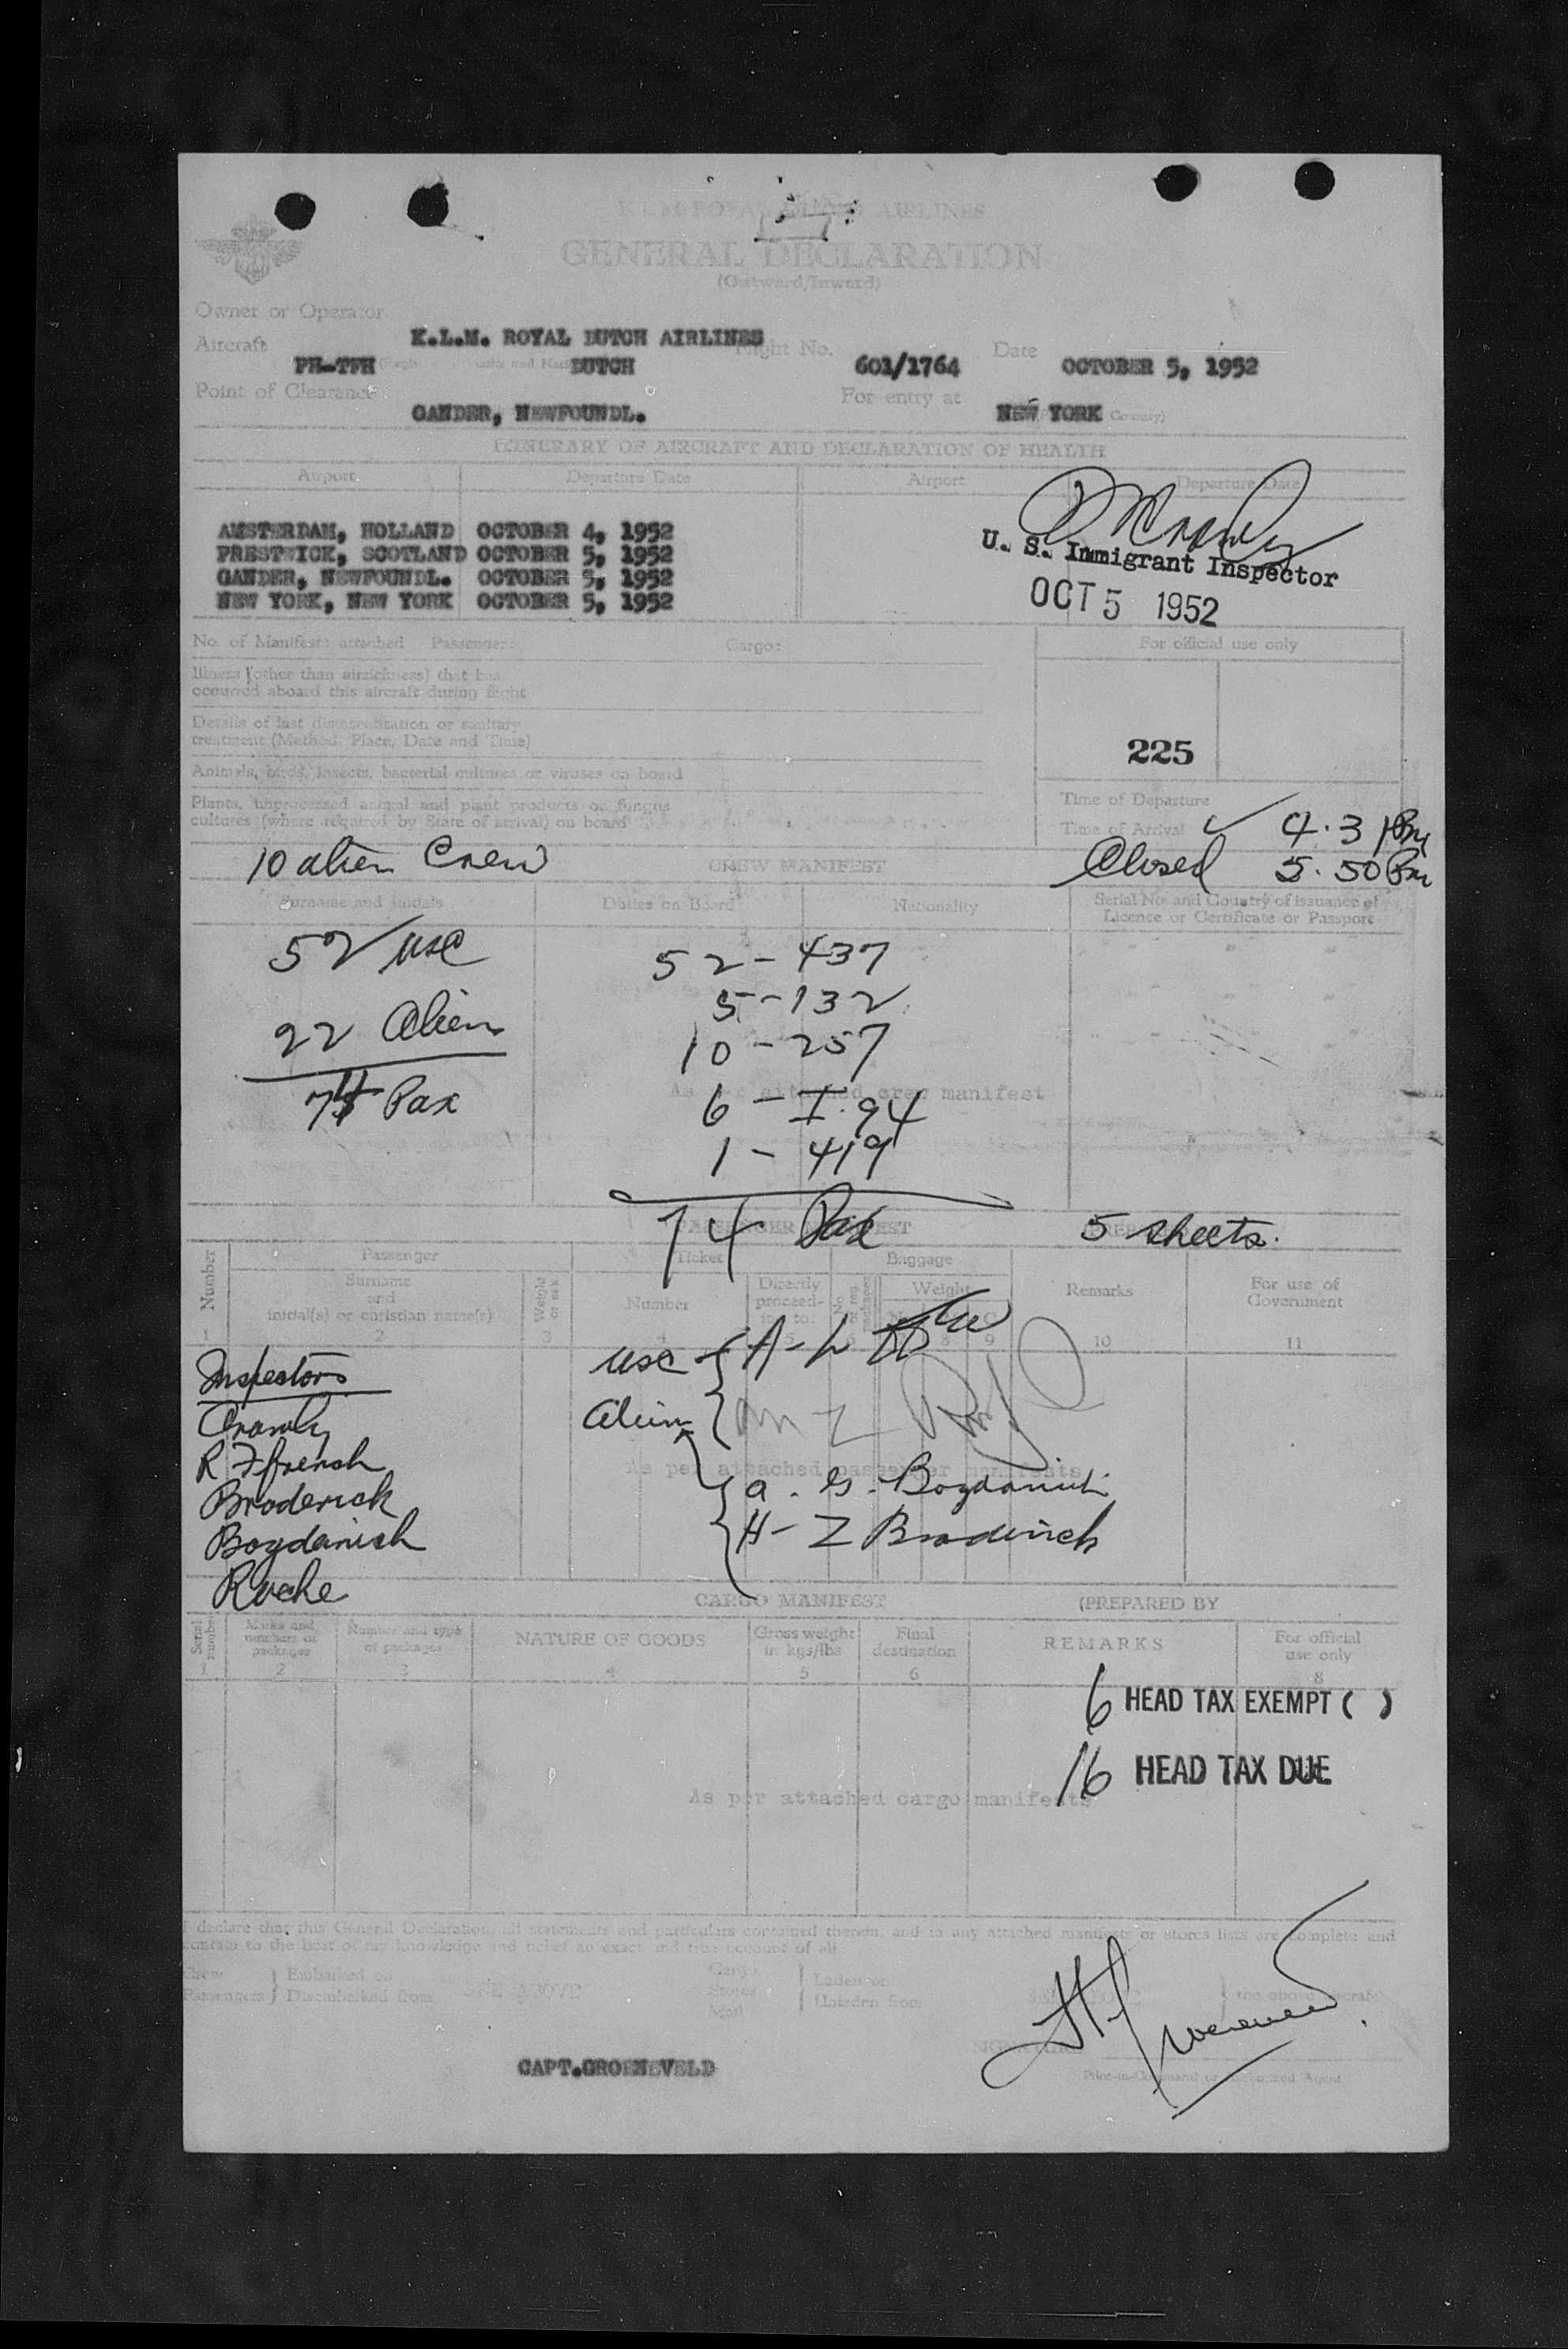 K.L.M. ROYAL DUTCH AIRLINES
GENERAL DECLARATION
(Outward/Inward)
Owner or Operator
K.L.M. ROYAL DUTCH AIRLINES
Aircraft PH-TFH DUTCH Flight No. 601/1764 Date OCTOBER 5, 1952
Point of Clearance GANDER, NEWFOUNDL. For entry at NEW YORK
ITINERARY OF AIRCRAFT AND DECLARATION OF HEALTH
Airport Departure Date Airport Departure Date
AMSTERDAM, HOLLAND OCTOBER 4, 1952
PRESTWICK, SCOTLAND OCTOBER 5, 1952
GANDER, NEWFOUNDL. OCTOBER 5, 1952
NEW YORK, NEW YORK OCTOBER 5, 1952
U. S. Immigrant Inspector
OCT 5 1952
No. of Manifests attached Passenger: Cargo:
For official use only
Illness (other than airsickness) that has
occurred aboard this aircraft during flight
Details of last disinsectization or sanitary
treatment (Method, Place, Date and Time)
225
Animals, birds, insects, bacterial cultures or viruses on board
Plants, unprocessed animal and plant products or fungus
cultures (where required by State of arrival) on board
Time of Departure
Time of Arrival 4.31 Pm
10 alien Crew
CREW MANIFEST
Closed 5.50 Pm
Surname and initials Duties on Board Nationality Serial No. and Country of issuance of
Licence or Certificate or Passport
52 USC
22 Alien
74 Pax
52 - 437
5 - 132
10 - 257
As per attached crew manifest
6 - I.94
1 - 419
74 Pax
5 sheets.
Number Passenger Ticket Baggage
Surname
and
initial(s) or christian name(s) Weight or sex Number Directly proceeding to: Weight Remarks For use of
Government
1 2 3 4 5 6 8 9 10 11
Inspectors
USC A-L
Crawly
Alien M Z
R Ffrench
As per attached passenger manifests
Broderick
A. G. Bogdanich
Bogdanich
H-Z Broderick
Roche
CARGO MANIFEST (PREPARED BY
Serial number Marks and numbers on packages Number and type of packages NATURE OF GOODS Gross weight in kgs/lbs Final destination REMARKS For official use only
1 2 3 4 5 6 8
6 HEAD TAX EXEMPT ( )
16 HEAD TAX DUE
As per attached cargo manifests
I declare that this General Declaration, all statements and particulars contained therein, and in any attached manifests or stores lists are complete and
contain to the best of my knowledge and belief an exact and true account of all
Crew Passengers Embarked on Disembarked from SEE ABOVE Cargo Stores Mail Laden on Unladen from the above aircraft
CAPT.GROENEVELD
Pilot-in-Command or Authorized Agent